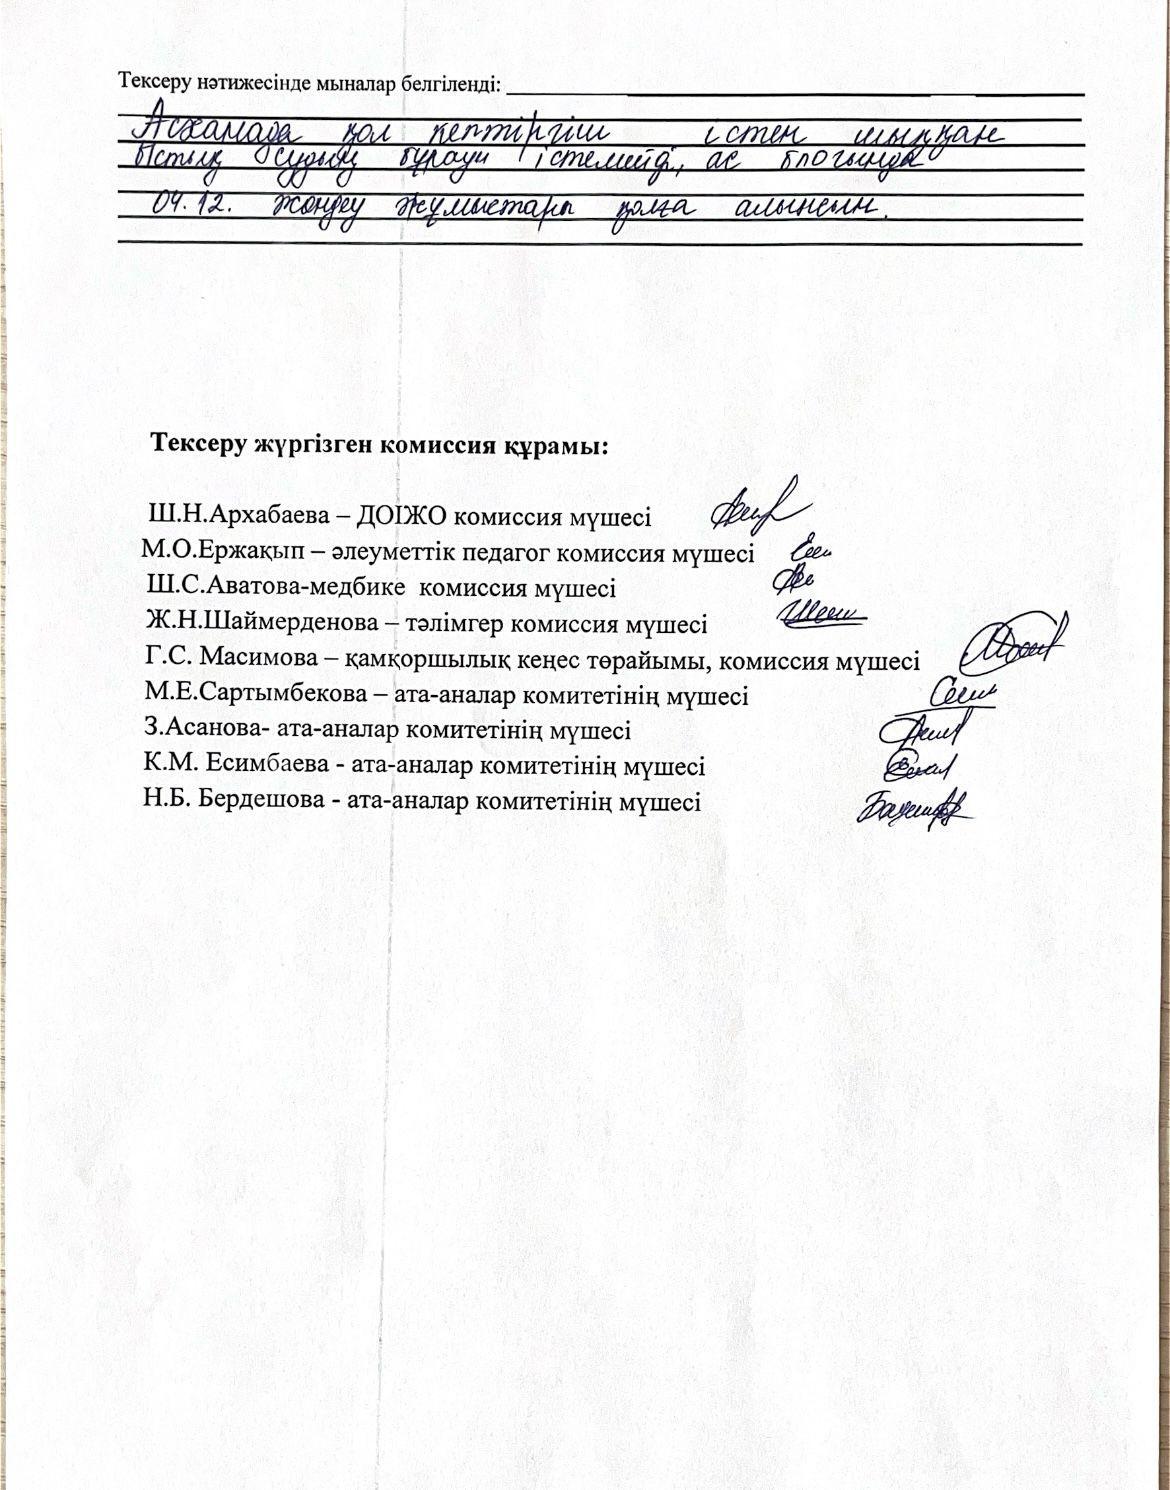 Тексеру нәтижесінде мыналар белгіленді:
Асханада қол кептіргіш істен шыққан
Ыстық судың бұрауы істемейді, ас блогында
04.12. жөндеу жұмыстары қолға алынсын.
Тексеру жүргізген комиссия құрамы:
Ш.Н.Архабаева – ДОІЖО комиссия мүшесі
М.О.Ержақып – әлеуметтік педагог комиссия мүшесі
Ш.С.Аватова-медбике комиссия мүшесі
Ж.Н.Шаймерденова – тәлімгер комиссия мүшесі
Г.С. Масимова – қамқоршылық кеңес төрайымы, комиссия мүшесі
М.Е.Сартымбекова – ата-аналар комитетінің мүшесі
З.Асанова- ата-аналар комитетінің мүшесі
К.М. Есимбаева - ата-аналар комитетінің мүшесі
Н.Б. Бердешова - ата-аналар комитетінің мүшесі